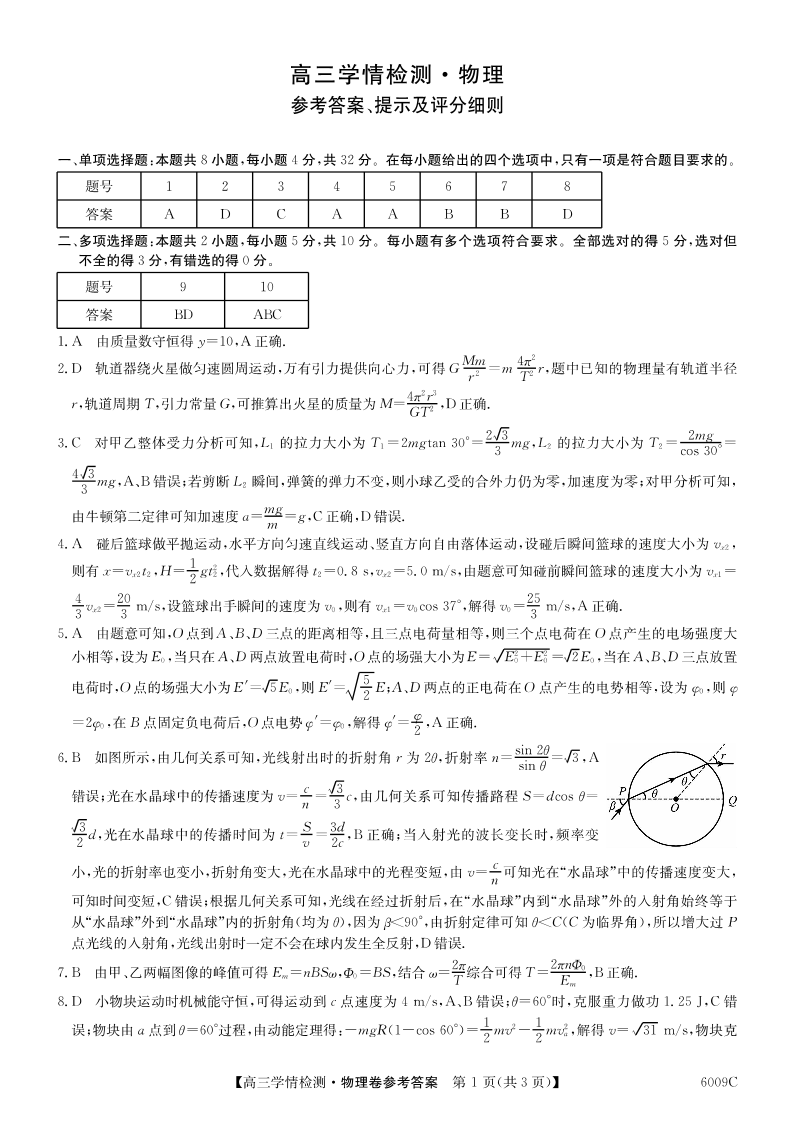 高三学情检测·物理
参考答案、提示及评分细则
一、单项选择题:本题共 8 小题,每小题 4 分,共 32 分。在每小题给出的四个选项中,只有一项是符合题目要求的。
题号 1 2 3 4 5 6 7 8
答案 A D C A A B B D
二、多项选择题:本题共 2 小题,每小题 5 分,共 10 分。每小题有多个选项符合要求。全部选对的得 5 分,选对但
不全的得 3 分,有错选的得 0 分。
题号 9 10
答案 BD ABC
1. A 由质量数守恒得 y=10,A 正确.
2. D 轨道器绕火星做匀速圆周运动,万有引力提供向心力,可得 G\frac{Mm}{r^2}=m\frac{4π^2}{T^2}r,题中已知的物理量有轨道半径
r,轨道周期 T,引力常量 G,可推算出火星的质量为 M=\frac{4π^2r^3}{GT^2},D 正确.
3. C 对甲乙整体受力分析可知,L_1 的拉力大小为 T_1=2mgtan 30°=\frac{2\sqrt{3}}{3}mg,L_2 的拉力大小为 T_2=\frac{2mg}{cos 30°}=
\frac{4\sqrt{3}}{3}mg,A、B 错误;若剪断 L_2 瞬间,弹簧的弹力不变,则小球乙受的合外力仍为零,加速度为零;对甲分析可知,
由牛顿第二定律可知加速度 a=\frac{mg}{m}=g,C 正确,D 错误.
4. A 碰后篮球做平抛运动,水平方向匀速直线运动、竖直方向自由落体运动,设碰后瞬间篮球的速度大小为 v_{x2},
则有 x=v_{x2}t_2,H=\frac{1}{2}gt_2^2,代入数据解得 t_2=0.8 s,v_{x2}=5.0 m/s,由题意可知碰前瞬间篮球的速度大小为 v_{x1}=
\frac{4}{3}v_{x2}=\frac{20}{3} m/s,设篮球出手瞬间的速度为 v_0,则有 v_{x1}=v_0cos 37°,解得 v_0=\frac{25}{3} m/s,A 正确.
5. A 由题意可知,O 点到 A、B、D 三点的距离相等,且三点电荷量相等,则三个点电荷在 O 点产生的电场强度大
小相等,设为 E_0,当只在 A、D 两点放置电荷时,O 点的场强大小为 E=\sqrt{E_0^2+E_0^2}=\sqrt{2}E_0,当在 A、B、D 三点放置
电荷时,O 点的场强大小为 E′=\sqrt{5}E_0,则 E′=\sqrt{\frac{5}{2}}E;A、D 两点的正电荷在 O 点产生的电势相等,设为 φ_0,则 φ
=2φ_0,在 B 点固定负电荷后,O 点电势 φ′=φ_0,解得 φ′=\frac{φ}{2},A 正确.
6. B 如图所示,由几何关系可知,光线射出时的折射角 r 为 2θ,折射率 n=\frac{sin 2θ}{sin θ}=\sqrt{3},A
错误;光在水晶球中的传播速度为 v=\frac{c}{n}=\frac{\sqrt{3}}{3}c,由几何关系可知传播路程 S=dcos θ=
\frac{\sqrt{3}}{2}d,光在水晶球中的传播时间为 t=\frac{S}{v}=\frac{3d}{2c},B 正确;当入射光的波长变长时,频率变
P β θ O θ r Q
小,光的折射率也变小,折射角变大,光在水晶球中的光程变短,由 v=\frac{c}{n}可知光在“水晶球”中的传播速度变大,
可知时间变短,C 错误;根据几何关系可知,光线在经过折射后,在“水晶球”内到“水晶球”外的入射角始终等于
从“水晶球”外到“水晶球”内的折射角(均为 θ),因为 β<90°,由折射定律可知 θ<C(C 为临界角),所以增大过 P
点光线的入射角,光线出射时一定不会在球内发生全反射,D 错误.
7. B 由甲、乙两幅图像的峰值可得 E_m=nBSω,Φ_0=BS,结合 ω=\frac{2π}{T}综合可得 T=\frac{2πnΦ_0}{E_m},B 正确.
8. D 小物块运动时机械能守恒,可得运动到 c 点速度为 4 m/s,A、B 错误;θ=60°时,克服重力做功 1.25 J,C 错
误;物块由 a 点到 θ=60°过程,由动能定理得:-mgR(1-cos 60°)=\frac{1}{2}mv^2-\frac{1}{2}mv_a^2,解得 v=\sqrt{31} m/s,物块克
【高三学情检测·物理卷参考答案 第 1 页(共 3 页)】 6009C